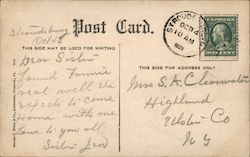 Stroudsburg
Oct 4/3
Post Card.
THIS SIDE MAY BE USED FOR WRITING.
THIS SIDE FOR ADDRESS ONLY.
STROUDSB
OCT 4
10 AM
Dear Sister
found Fannie
real well She
expects to come
home with me
Love to you all
Sister
Mrs S. A. Clearwater
Highland
Ulster Co
N Y